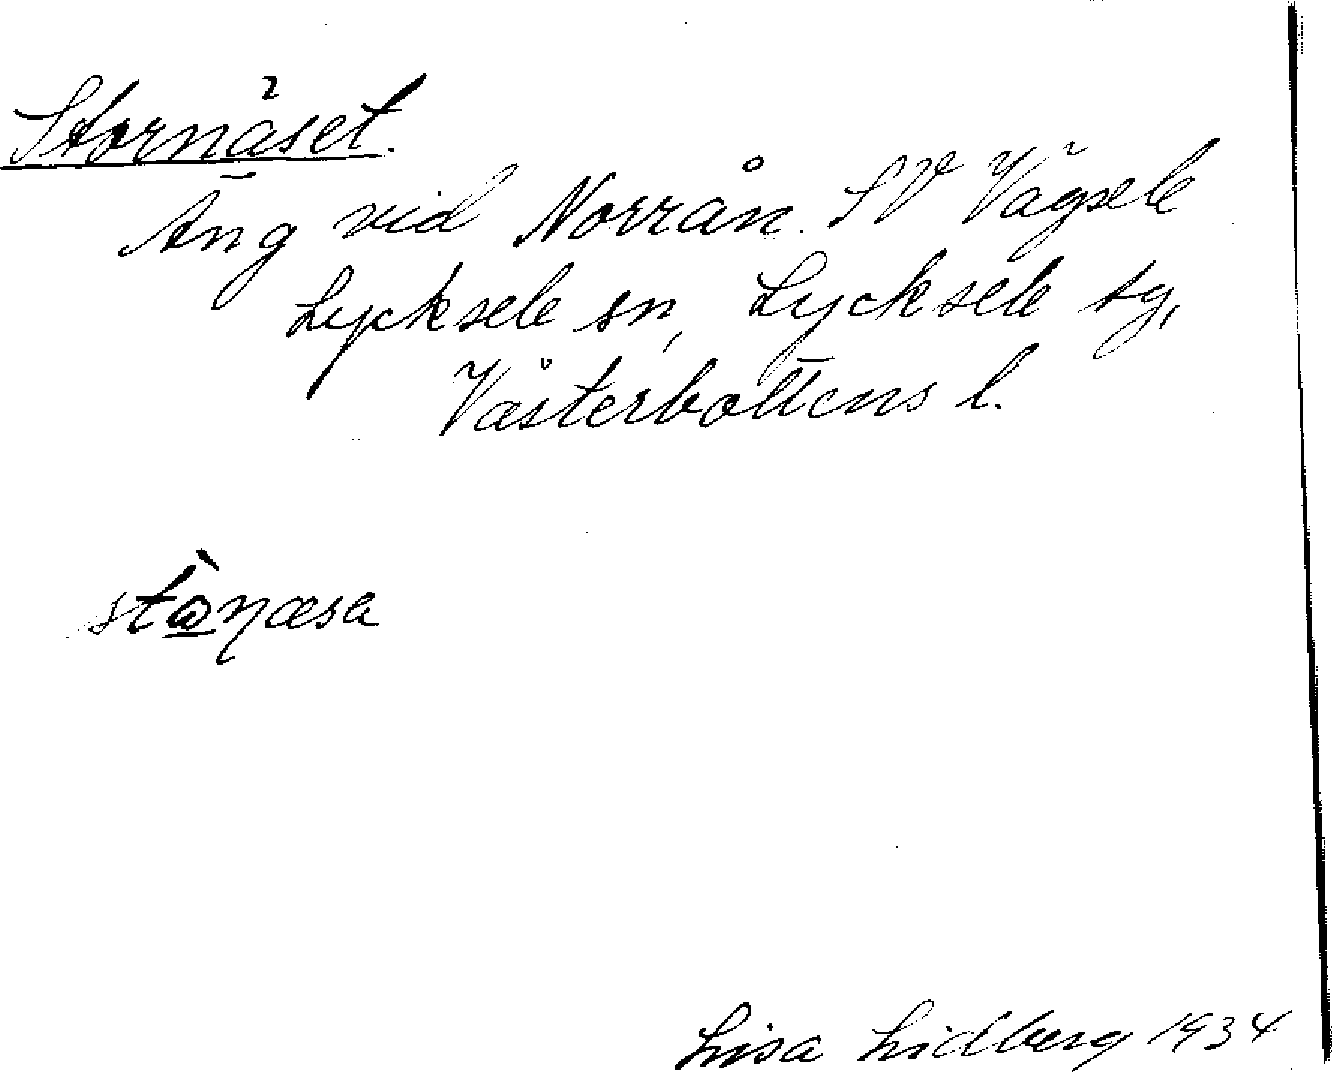 Stornäset.
Äng vid Norrån. SV Vägsele
Lycksele sn, Lycksele tg,
Västerbottens l.
Lisa Lidberg 1934